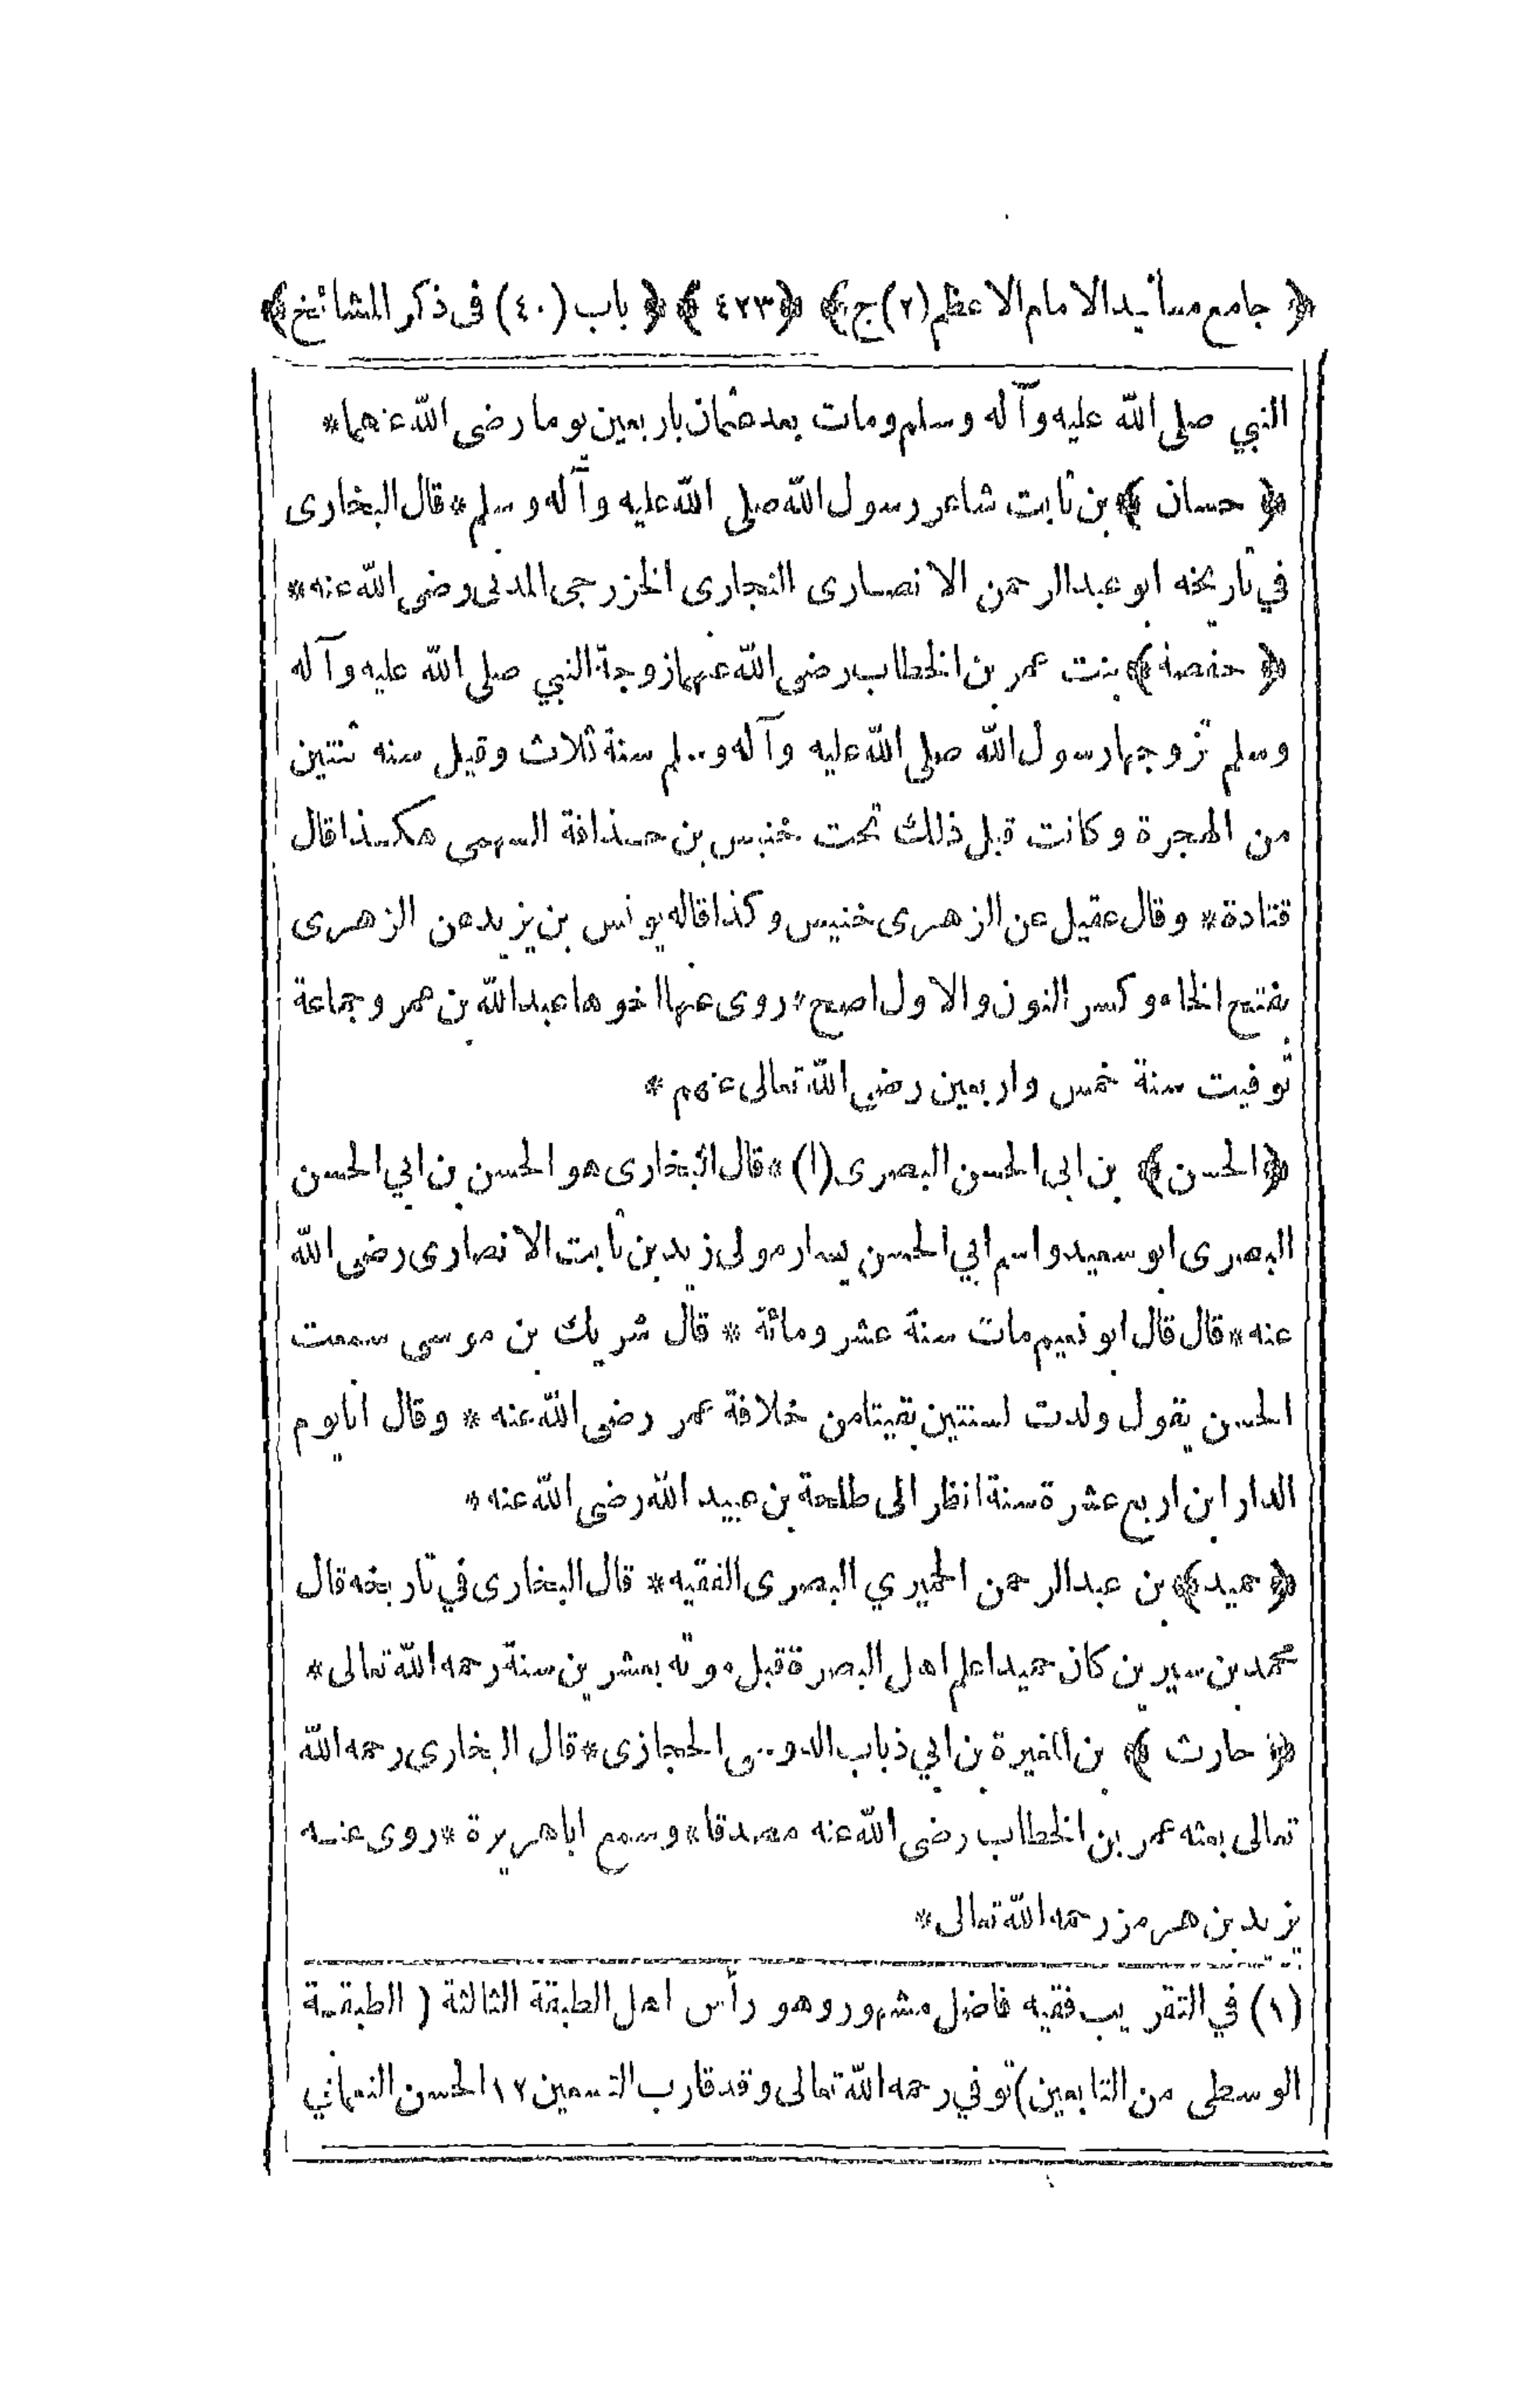 ﴿ جامع مسانيد الامام الاعظم (٢) ج ﴾ ﴿ ٤٢٣ ﴾ ﴿ باب (٤٠) فى ذكر المشائخ ﴾
النبي صلى الله عليه وآله وسلم ومات بعد عثمان باربعين يوما رضى الله عنهما *
﴿ حسان ﴾ بن ثابت شاعر رسول الله صلى الله عليه وآله وسلم * قال البخارى
في تاريخه ابو عبد الرحمن الانصارى النجارى الخزرجى المدنى رضى الله عنه *
﴿ حفصة ﴾ بنت عمر بن الخطاب رضى الله عنهما زوجة النبي صلى الله عليه وآله
وسلم تزوجها رسول الله صلى الله عليه وآله وسلم سنة ثلاث وقيل سنه ثنتين
من الهجرة وكانت قبل ذلك تحت خنيس بن حذافة السهمى هكذا قال
قتادة * وقال عقيل عن الزهرى خنيس وكذا قاله يونس بن يزيد عن الزهرى
بفتح الخاء وكسر النون والاول اصح * روى عنها اخوها عبد الله بن عمر وجماعة
توفيت سنة خمس واربعين رضي الله تعالى عنهم *
﴿ الحسن ﴾ بن ابى الحسن البصرى (١) * قال البخارى هو الحسن بن ابي الحسن
البصرى ابو سعيد واسم ابي الحسن يسار مولى زيد بن ثابت الانصارى رضى الله
عنه * قال قال ابو نعيم مات سنة عشر ومائة * قال شريك بن موسى سمعت
الحسن يقول ولدت لسنتين بقيتا من خلافة عمر رضى الله عنه * وقال انا يوم
الدار ابن اربع عشرة سنة انظر الى طلحة بن عبيد الله رضى الله عنه *
﴿ حميد ﴾ بن عبد الرحمن الحميري البصرى الفقيه * قال البخارى في تاريخه قال
محمد بن سيرين كان حميد اعلم اهل البصرة قبل موته بعشرين سنة رحمه الله تعالى *
﴿ حارث ﴾ بن المغيرة بن ابي ذباب الدوسى الحجازى * قال البخارى رحمه الله
تعالى بعثه عمر بن الخطاب رضى الله عنه مصدقا * وسمع اباهريرة * روى عنه
يزيد بن هرمز رحمه الله تعالى *
(١) في التقريب فقيه فاضل مشهور وهو رأس اهل الطبقة الثالثة ( الطبقة
الوسطى من التابعين) توفي رحمه الله تعالى وقد قارب التسعين ١٢ الحسن النعماني